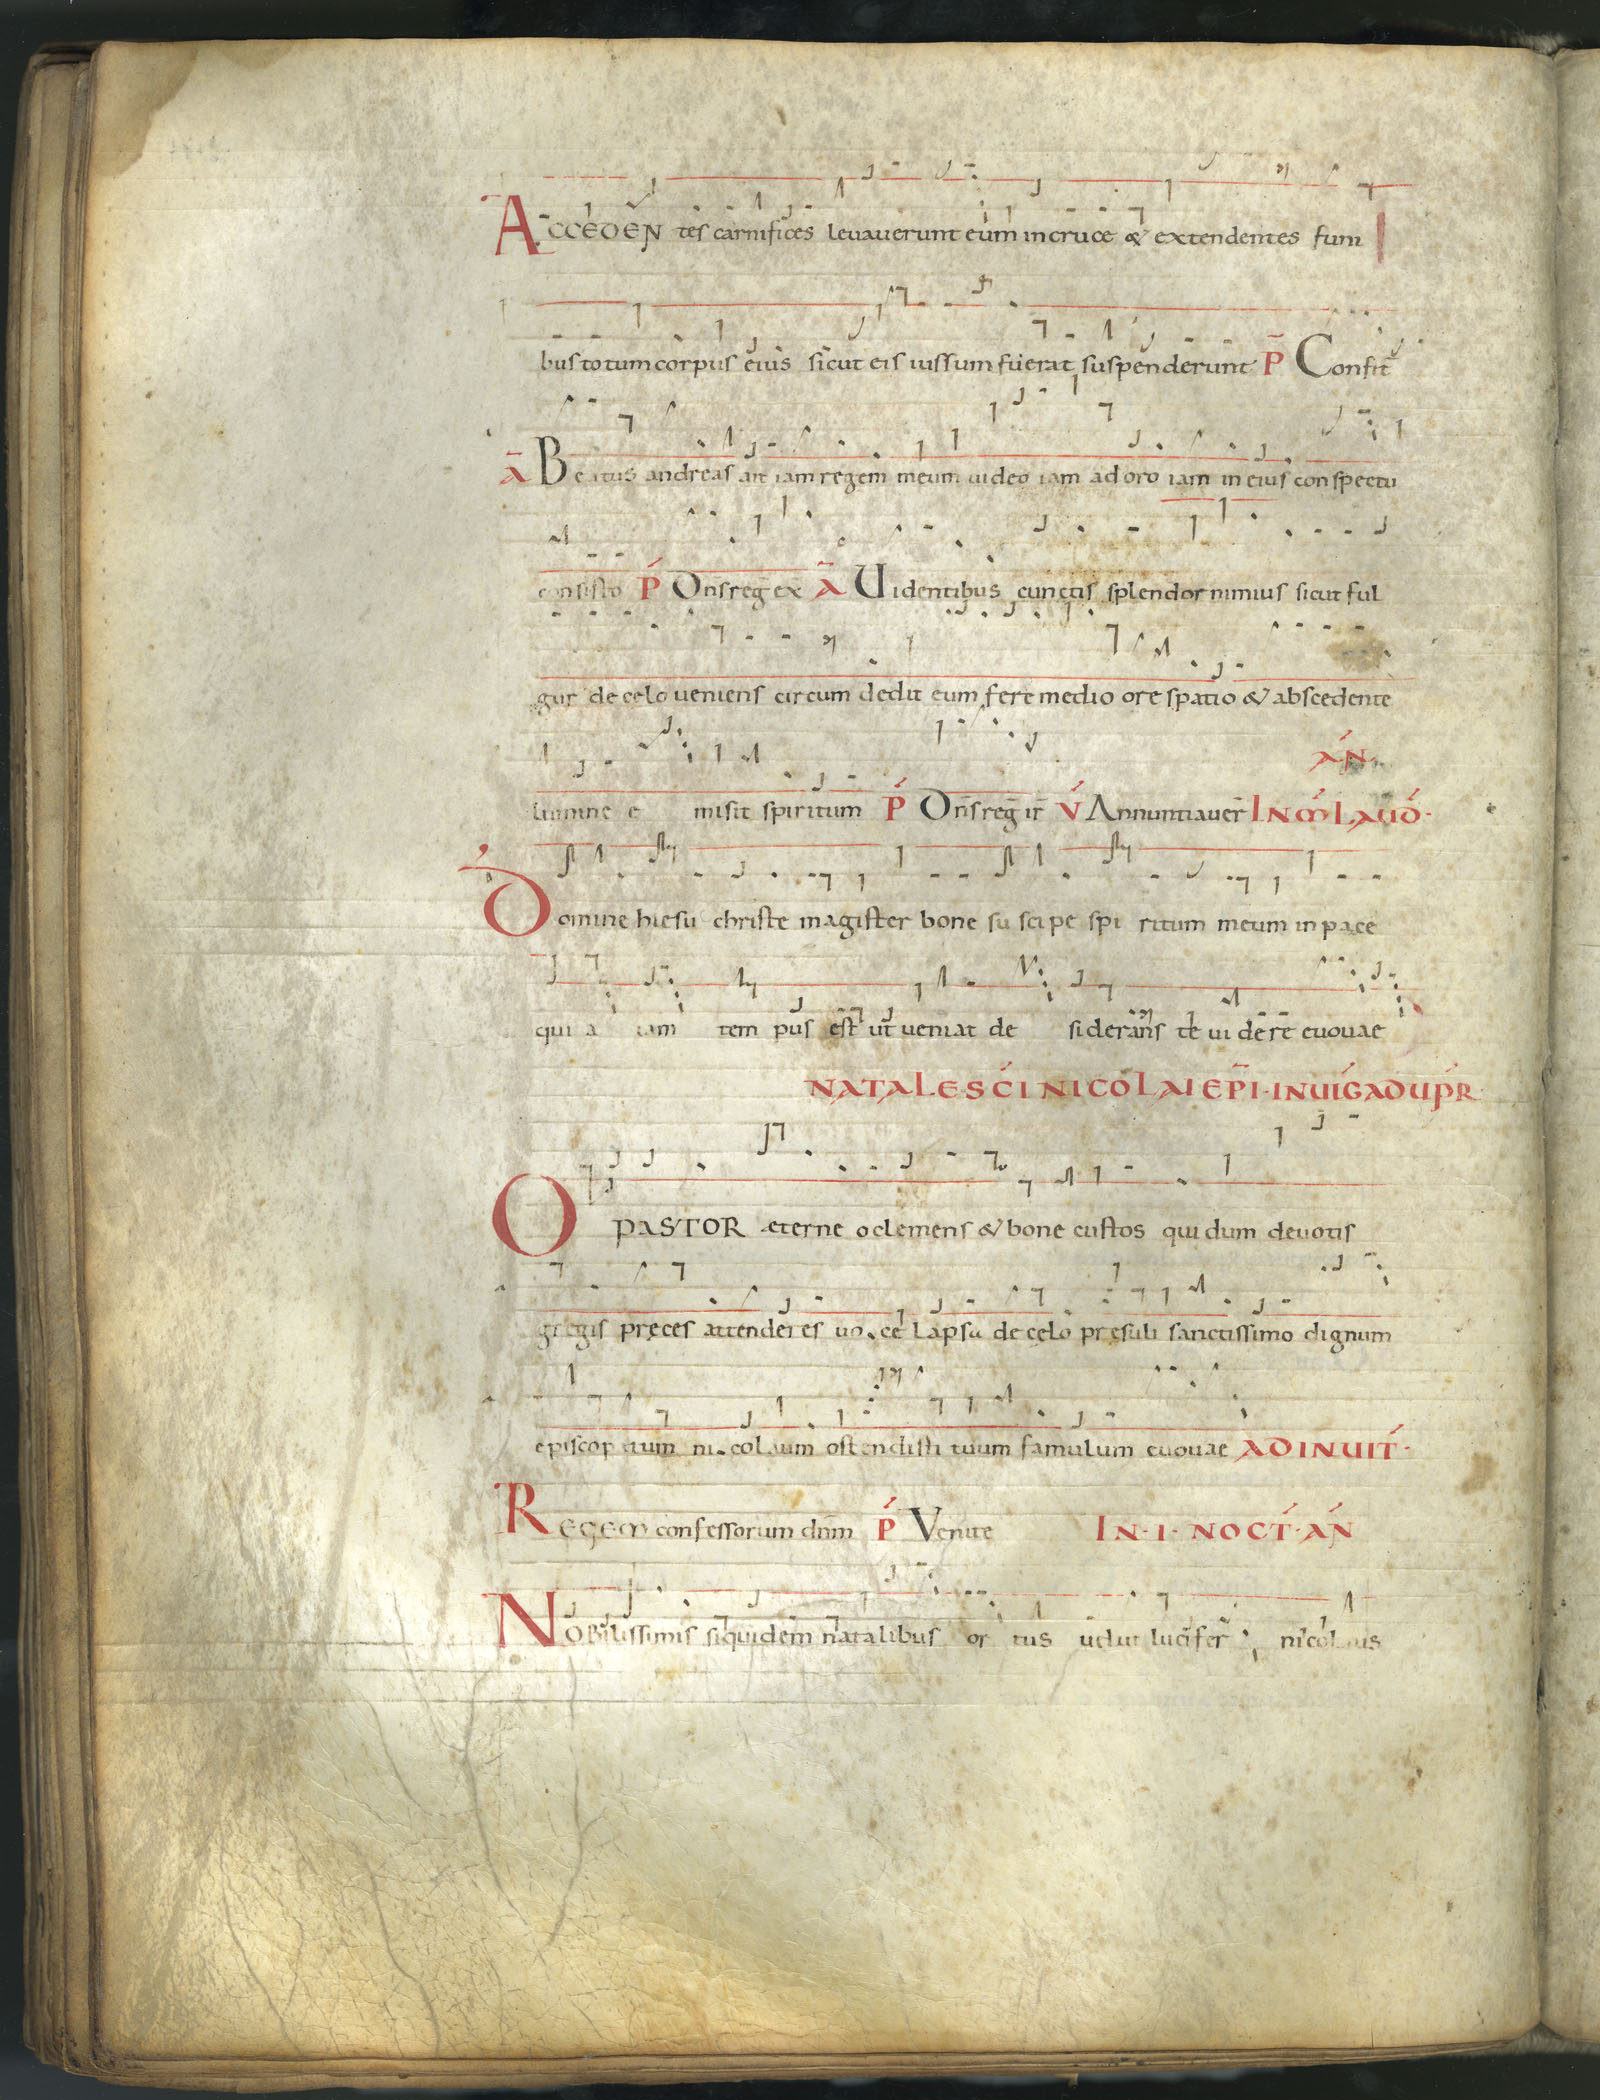 Acceden tes carnifices levaverunt eum in cruce & extendentes funi
bus totum corpus eius sicut eis iussum fuerat suspenderunt P̄ Confit̄
ā Beatus andreas ait iam regem meum video iam adoro iam in eius conspectu
consisto P̄ Dn̄s reḡ ex ā Uidentibus cunctis splendor nimius sicut ful
gur de celo veniens circum dedit eum fere medio ore spatio & abscedente
ÁN.
lumine e misit spiritum P̄ Dn̄s reḡ ir̄ V́ Annuntiaver̄ IN M̄ LAUD̄.
Domine hiesu christe magister bone suscipe spi ritum meum in pace
quia iam tem pus est ut veniat de siderans te ui dere euouae
NATALE SC̄I NICOLAI EP̄I. IN UIḠ AD UP̄R
O PASTOR æterne o clemens & bone custos qui dum devotis
gregis pręces attenderes uo.ce lapsa de celo presuli sanctissimo dignum
episcopatum ni.colaum ostendisti tuum famulum euouae AD INUIT̄.
Regem confessorum dn̄m P̄ Venite IN. I. NOCT̄. ÁN
Nobilissimis siquidem natalibus or tus uelut lucifer nicolaus